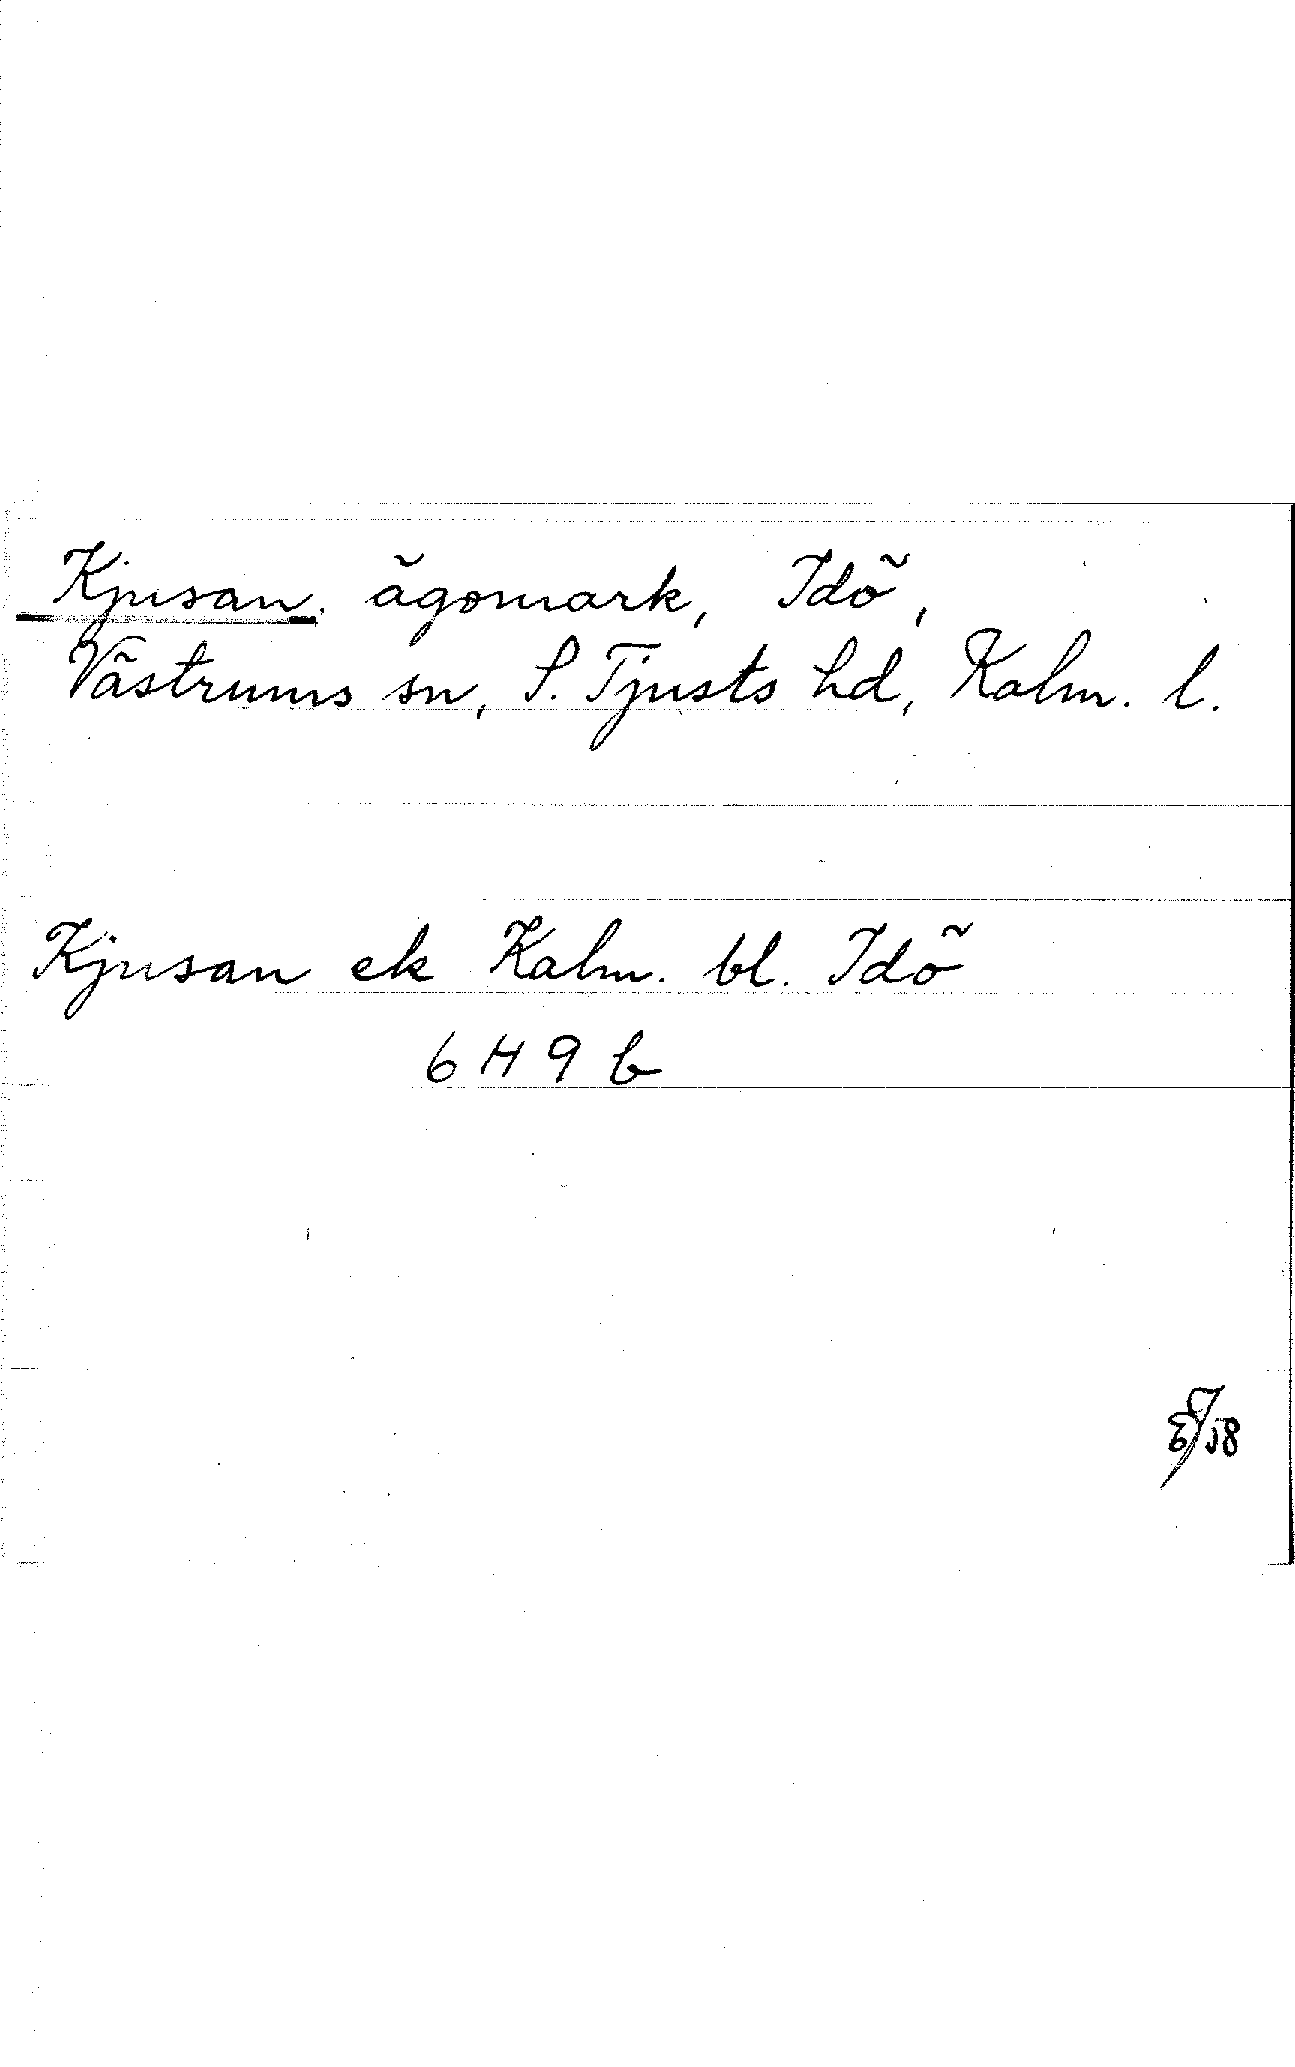 Kjusan. ägomark, Idö,
Västrums sn, S. Tjusts hd, Kalm. l.
Kjusan ek Kalm. bl. Idö
6 H 9 b